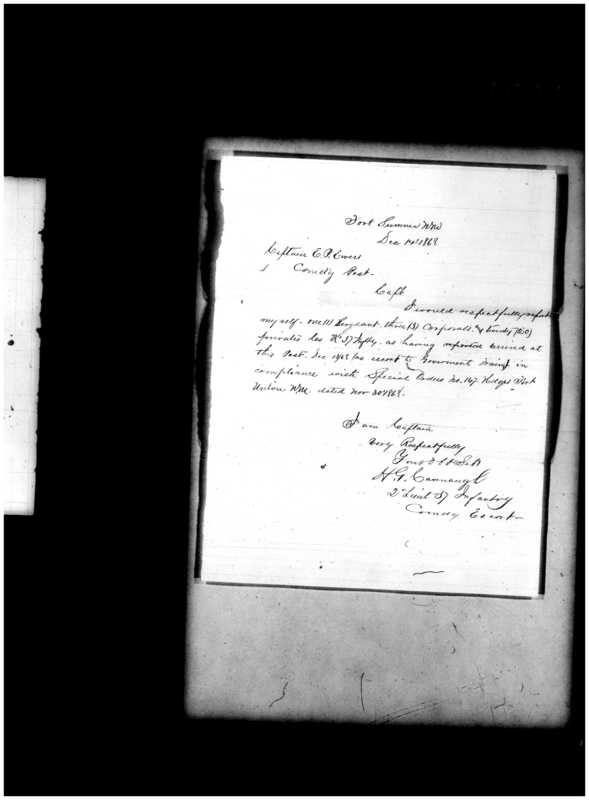 Fort Sumner N.M.
Dec 14 1868
Captain E. P. Ewers
Comdg Post
Capt
I would respectfully report
myself - one (1) Sergeant. three (3) Corporals. & twenty (20)
privates Co 37 Infty. as having reported arrived at
this Post. Dec as escort to Government train in
compliance with Special Orders No. 147. Hdqrs Fort
Union N.M. dated Nov 30 1868.
I am Captain
Very Respectfully
Your Obt Svt
H. G. Cavanaugh
2d Lieut 37 Infantry
Comdg Escort